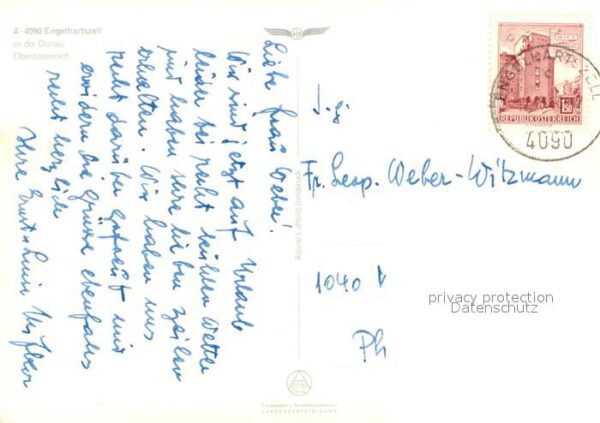 A - 4090 Engelhartszell
an der Donau,
Oberösterreich
Liebe Frau Weber!
Wir sind jetzt auf Urlaub
leider bei recht kühlem Wetter
und haben Ihre lieben Zeilen
erhalten. Wir haben uns
recht darüber gefreut und
erwidern die Grüsse ebenfalls
recht herzlich
Ihre
Alpine Luftbild Innsbruck
LANDESVERTEIDIGUNG
1.50
REPUBLIK ÖSTERREICH
ENGELHARTSZELL
4090
Fr. Leop. Weber-Witzmann
1040
Ph
privacy protection
Datenschutz